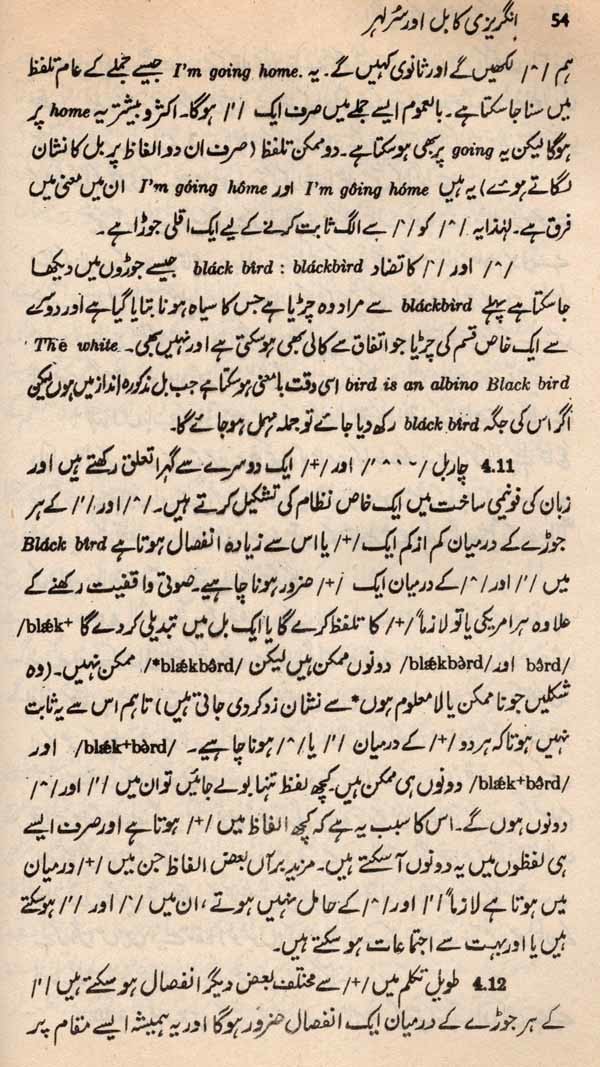 54 انگریزی کا بل اور سُر لہر
ہم /^/ لکھیں گے اور ثانوی کہیں گے۔ یہ I'm going home. جیسے جملے کے عام تلفظ
میں سنا جا سکتا ہے۔ بالعموم ایسے جملے میں صرف ایک /'/ ہوگا۔ اکثر و بیشتر یہ home پر
ہوگا لیکن یہ going پر بھی ہو سکتا ہے۔ دو ممکن تلفظ (صرف ان دو الفاظ پر بل کا نشان
لگاتے ہوئے) یہ ہیں I'm gôing hóme اور I'm góing hôme ان میں معنی میں
فرق ہے۔ لہٰذا یہ /^/ کو /'/ سے الگ ثابت کرنے کے لیے ایک اقلی جوڑا ہے۔
/^/ اور /`/ کا تضاد bláck bîrd : bláckbìrd جیسے جوڑوں میں دیکھا
جا سکتا ہے پہلے bláckbìrd سے مراد وہ چڑیا ہے جس کا سیاہ ہونا بتایا گیا ہے اور دوسرے
سے ایک خاص قسم کی چڑیا جو اتفاق سے کالی بھی ہو سکتی ہے اور نہیں بھی۔ The white
bird is an albino Black bird اسی وقت بامعنی ہو سکتا ہے جب بل مذکورہ انداز میں ہوں لیکن
اگر اس کی جگہ bláck bîrd رکھ دیا جائے تو جملہ مہمل ہو جائے گا۔
4.11 چار بل /' ^ ` ˘/ اور /+/ ایک دوسرے سے گہرا تعلق رکھتے ہیں اور
زبان کی فونیمی ساخت میں ایک خاص نظام کی تشکیل کرتے ہیں۔ /^/ اور /'/ کے ہر
جوڑے کے درمیان کم از کم ایک /+/ یا اس سے زیادہ انفصال ہوتا ہے Bláck bîrd
میں /'/ اور /^/ کے درمیان ایک /+/ ضرور ہونا چاہیے۔ صوتی واقفیت رکھنے کے
علاوہ ہر امریکی یا تو لازماً /+/ کا تلفظ کرے گا یا ایک بل میں تبدیلی کر دے گا /blǽk+
bə̂rd/ اور /blǽkbə̀rd/ دونوں ممکن ہیں لیکن /blǽkbə̂rd*/ ممکن نہیں۔ (وہ
شکلیں جو ناممکن یا لامعلوم ہوں * سے نشان زد کر دی جاتی ہیں) تاہم اس سے یہ ثابت
نہیں ہوتا کہ ہر دو /+/ کے درمیان /'/ یا /^/ ہونا چاہیے۔ /blǽk+bə̀rd/ اور
/blǽk+bə̂rd/ دونوں ہی ممکن ہیں۔ کچھ لفظ تنہا بولے جائیں تو ان میں /'/ اور /^/
دونوں ہوں گے۔ اس کا سبب یہ ہے کہ کچھ الفاظ میں /+/ ہوتا ہے اور صرف ایسے
ہی لفظوں میں یہ دونوں آ سکتے ہیں۔ مزید برآں بعض الفاظ جن میں /+/ درمیان
میں ہوتا ہے لازماً /'/ اور /^/ کے حامل نہیں ہوتے، ان میں /`/ اور /'/ ہو سکتے
ہیں یا اور بہت سے اجتماعات ہو سکتے ہیں۔
4.12 طویل تکلم میں /+/ سے مختلف بعض دیگر انفصال ہو سکتے ہیں /'/
کے ہر جوڑے کے درمیان ایک انفصال ضرور ہوگا اور یہ ہمیشہ ایسے مقام پر